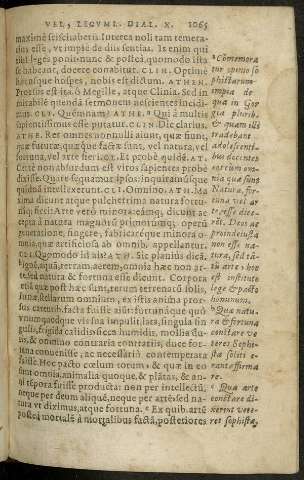 VEL, LEGVML. DIAL. X. 1065
maximè scriscitaberis. Interea noli tam temera-
rius esse, vt impiè de diis sentias. Is enim qui
tibi leges ponit nunc & posteà, quomodo ista
se habeant, docere conabitur. CLIN. Optimè
hæcunque hospes, nobis est dictum. ATHEN.
Prorsus est ita ô Megille, atque Clinia. Sed in
mirabilē quendā sermonem nescientes incidi-
mus. CL. Quémnam? ATHE. Qui à multis
sapientissimus esse putatur. CLIN. Dic clarius.
ATHE. Res omnes nonnulli aiunt, quæ sunt,
quæ futuræ, quæq́ue factæ sunt, vel natura, vel
fortuna, vel arte fieri. CL. Et probè quidē. AT.
Certè non absurdum est viros sapientes probè
dixisse. Quare sequamur ipsos: inquiramúsque
quidnā intellexerunt. CLI. Omnino. ATH. Ma
xima dicunt atque pulcherrima natura fortu-
náq́; fieri: Arte verò minora: eamq́; dicunt ac
cepta à natura magnorū primorumq́; operū
generatione, fingere, fabricaréque minora o-
mnia, quæ artificiosa ab omnib. appellantur.
CL. Quomodo id ais? ATH. Sic planiùs dicā.
Ignē, aquā, terram, aerem, omnia hæc non ar-
te, sed natura & fortuna esse dicunt. Corpora
etiā quæ post hæc sunt, terræ terrenatū solis,
lunæ, stellarum omnium, ex istis anima pror-
sus carentib. facta fuisse aiūt: fortunáque quò
vnumquodque vis sua impulit lata, singula sin
gulis, frigida calidis, sicca humidis, mollia du-
ris, & omnino contraria contrariis, duce for-
tuna conuenisse, ac necessariò contemperata
fuisse. Hoc pacto cœlum totum, & quæ in eo
sunt omnia, animalia quoque, & plātas, & an-
ni tēpora fuisse producta: non per intellectū,
neque per deum aliquē, neque per artē: sed na-
tura vt diximus, atque fortuna. c Ex quib. artē
posteà mortalē à mortalibus factā, posteriores
a Cōmemora
tur opinio so
phistarum
impia de
qua in Gor
gia plurib.
& quam illi
tradebant
adolescenti-
bus docentes
omnia quæ sunt
Natura, for-
tuna vel ar
te esse dice-
bāt. Deos au
tem
non esse na-
tura, sed tā-
tū arte: hoc
est instituto
lege & pacto
hominum.
b Quæ natu-
ra & fortuna
constare ve
teres Sophi-
stæ soliti e-
rant affirma
re.
c Quæ arte
constare di-
xerint vete-
res sophistæ.